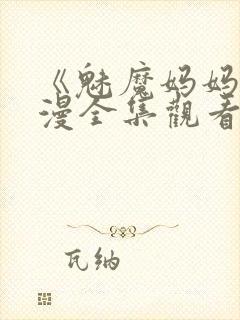 《魅魔妈妈
漫全集觀看
瓦纳